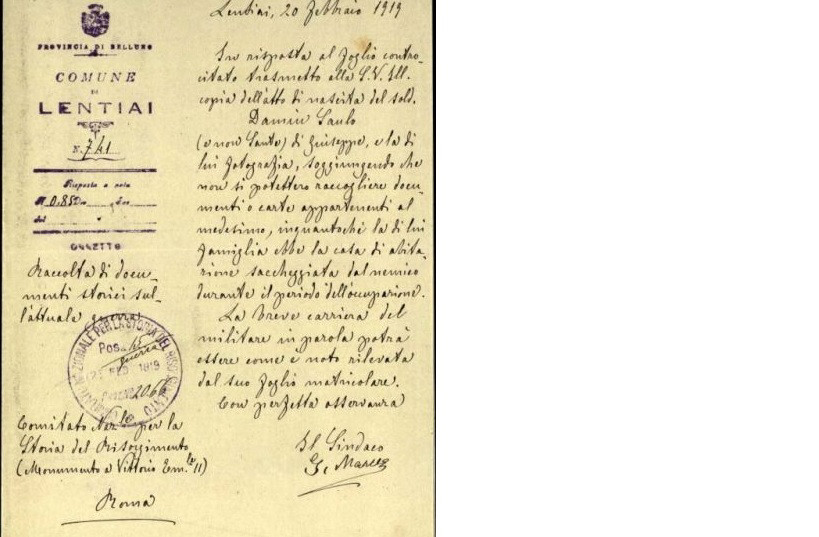 PROVINCIA DI BELLUNO
COMUNE
DI
LENTIAI
N. 741
Risposta a nota
N. 0.850
del
OGGETTO
Raccolta di docu-
menti storici sul-
l'attuale guerra
COMITATO NAZIONALE PER LA STORIA DEL RISORGIMENTO
Pos. 15
guerra
FEB 1919
2066
Comitato Naz.le per la
Storia del Risorgimento
(Monumento a Vittorio Em.le II)
Roma
Lentiai, 20 Febbraio 1919
In risposta al foglio contro-
citato trasmetto alla S.V. Ill.
copia dell'atto di nascita del sold.
Damin Saulo
(e non Sante) di Giuseppe, e la di
lui fotografia, soggiungendo che
non si potettero raccogliere docu-
menti o carte appartenenti al
medesimo, inquantoché la di lui
famiglia ebbe la casa di abita-
zione saccheggiata dal nemico
durante il periodo dell'occupazione.
La breve carriera del
militare in parola potrà
essere come è noto rilevata
dal suo foglio matricolare.
Con perfetta osservanza
Il Sindaco